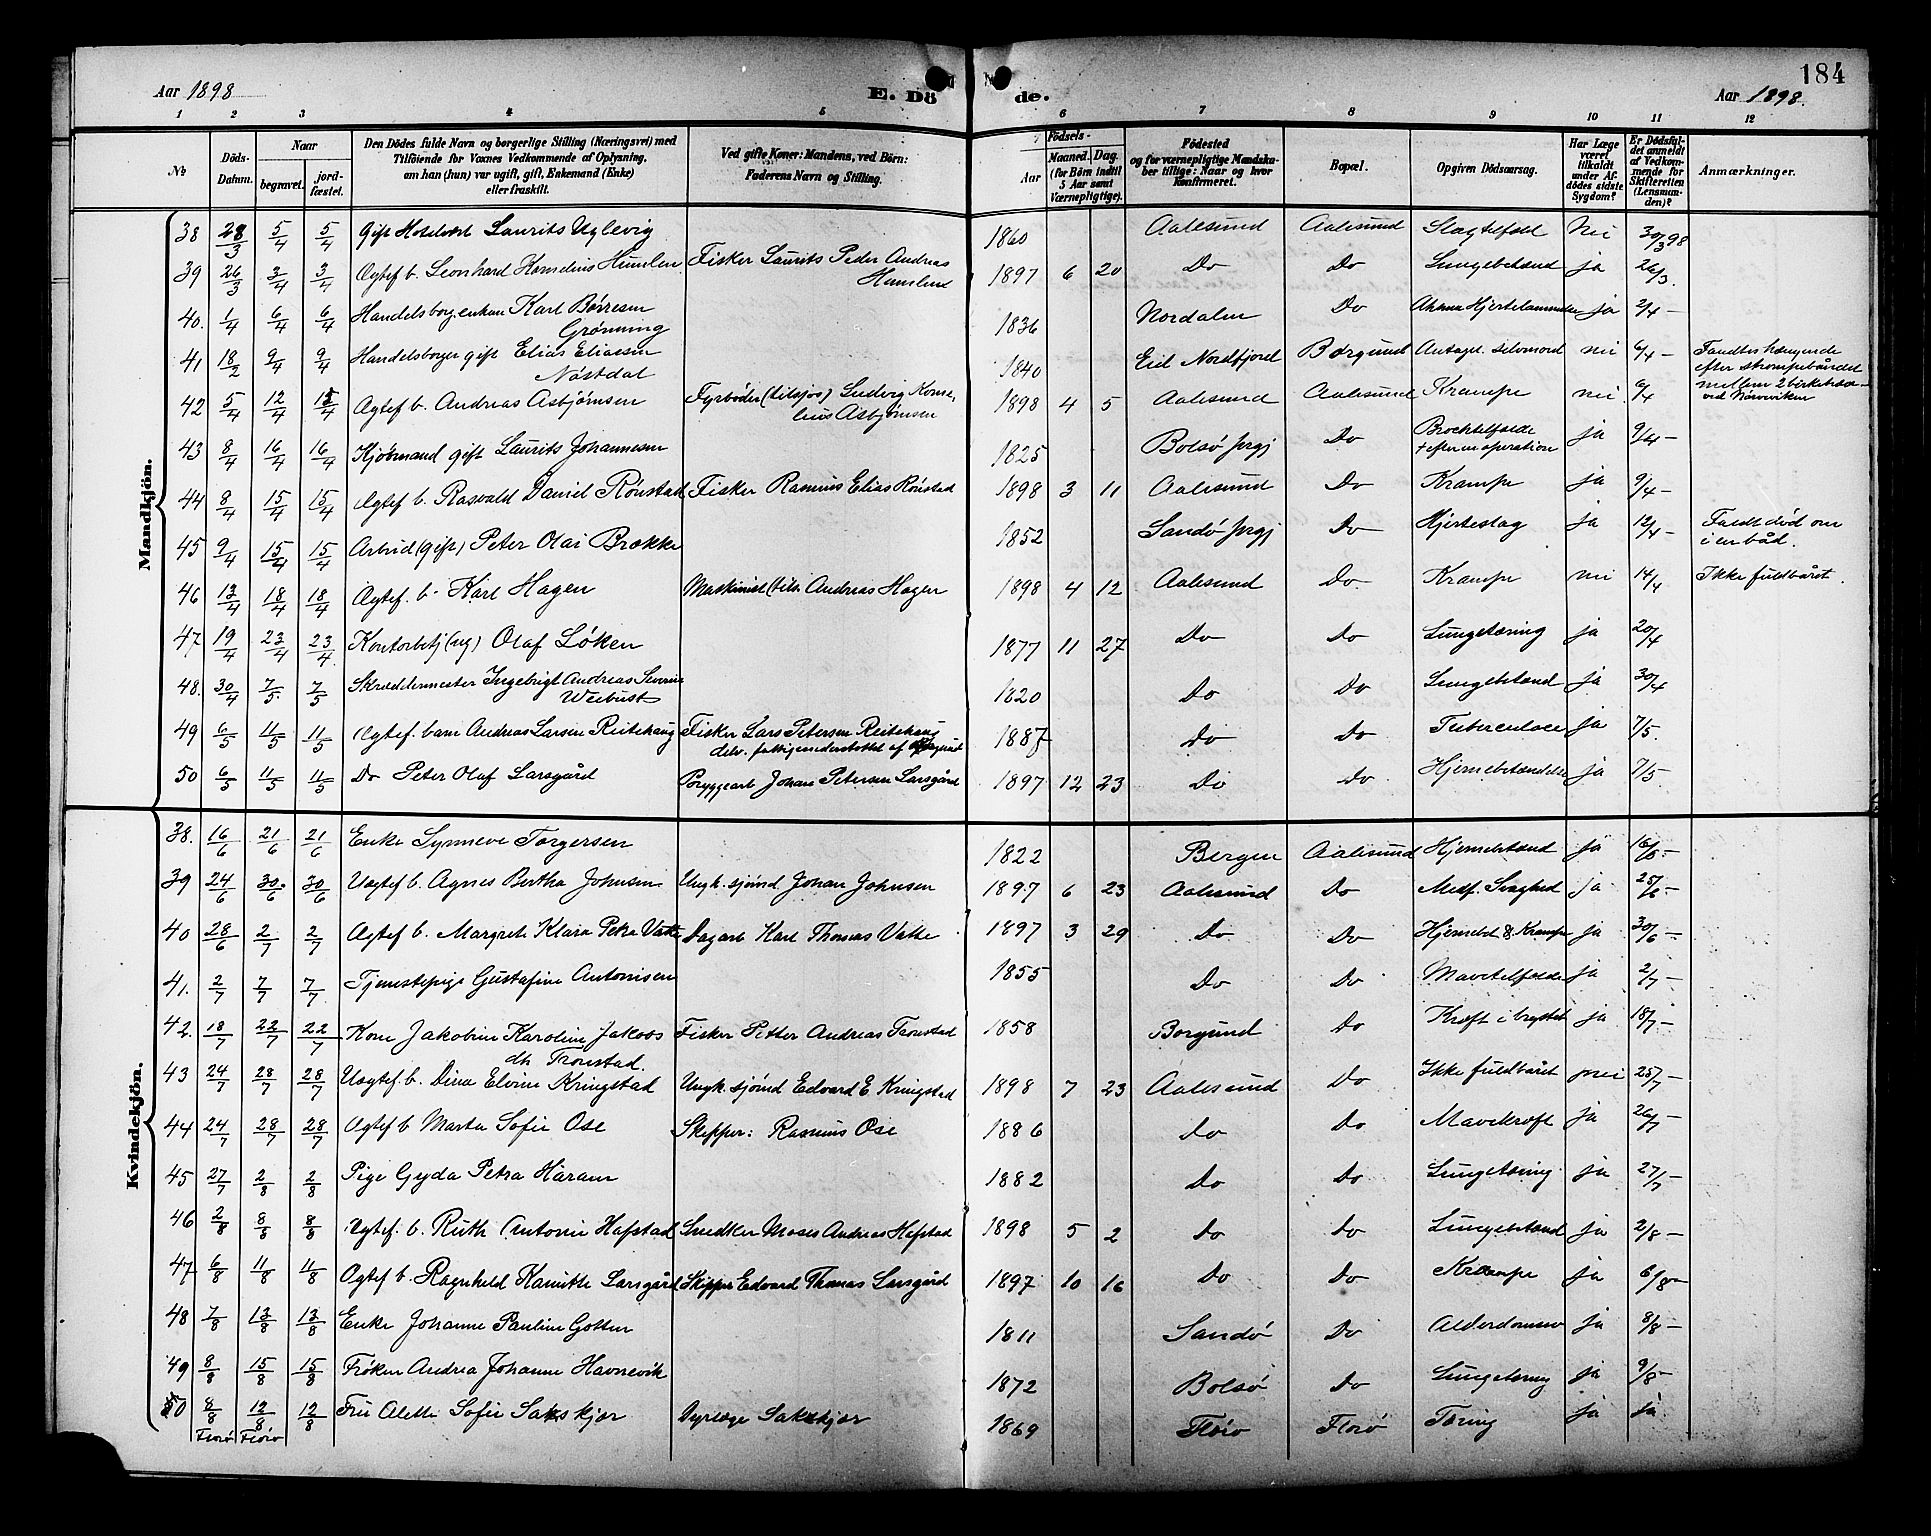 184
Aar 1898 E. Dö de. Aar 1898.
1 2 3 4 5 6 7 8 9 10 11 12
№ Döds-Datum. Naar begravet. jord-fæstet. Den Dödes fulde Navn og borgerlige Stilling (Næringsvei) med Tilföiende for Voxnes Vedkommende af Oplysning, om han (hun) var ugift, gift, Enkemand (Enke) eller fraskilt. Ved gifte Koner: Mandens, ved Börn: Faderens Navn og Stilling. Födsels- Aar Maaned. Dag. (for Börn indtil 5 Aar samt Værnepligtige). Födested og for værnepligtige Mandska-ber tillige: Naar og hvor Konfirmeret. Bopæl. Opgiven Dödsaarsag. Har Læge været tilkaldt under Af-dödes sidste Sygdom? Er Dödsfal-det anmeldt af Vedkom-mende for Skifteretten (Lensman-den)? Anmærkninger.
Mandkjön.
38 28/3 5/4 5/4 Gift Hotelvært Laurits Uglevig 1860 Aalesund Aalesund Slagtilfæld Nei 30/3 98
39 26/3 3/4 3/4 Ægtef b. Leonhard Kornelius Humlen Fisker Laurits Peder Andreas Humlen 1897 6 20 Do Do Lungebetænd ja 26/3.
40. 1/4 6/4 6/4 Handelsborg. enkem Karl Börresen Grønning 1836 Nordalen Do ja 2/4 –
41 18/2 9/4 9/4 Handelsborger gift Elias Eliassen Nöstdal 1840 Eid Nordfjord Borgund Antagel. selvmord nei 6/4 – Fandtes hængende efter strømpebåndet mellem 2 birketrær ved Nørveviken
42 5/4 12/4 12/4 Ægtef b. Andreas Asbjörnsen Fyrböder (tilsjøs) Ludvig Korne-lius Asbjörnsen 1898 4 5 Aalesund Aalesund Krampe nei 6/4
43 8/4 16/4 16/4 Kjöbmand gift Laurits Johannesen 1825 Bolsø prgj Do Broktilfælde + efter en operation ja 9/4 –
44 8/4 15/4 15/4 Ægtef b. Rasvald Daniel Rönstad Fisker Rasmus Elias Rönstad 1898 3 11 Aalesund Do Krampe ja 9/4 –
45 9/4 15/4 15/4 Arbeid (gift) Peter Olai Brække 1852 Sandö prgj Do Hjerteslag ja 12/4 – Faldt död om i en båd.
46 13/4 18/4 18/4 Ægtef. b. Karl Hagen Maskinist (tils Andreas Hagen 1898 4 12 Aalesund Do Krampe nei 14/4 Ikke fuldbåret.
47 19/4 23/4 23/4 Kontorbetj (ug) Olaf Löken 1877 11 27 Do Do Lungetæring ja 20/4
48. 30/4 7/5. 7/5 Skræddermester Ingebrigt Andreas Severin Weibust 1820 Do Do Lungebetænd ja 30/4
49 6/5 11/5 11/5 Ægtef. barn Andreas Larsen Reitehaug Fisker Lars Petersen Reitehaug delv. fattigunderstöttet af Borgund 1887 Do Do Tuberculose ja 7/5.
50 6/5 11/5 11/5 Do Peter Olaf Larsgård Bryggearb Johan Petersen Larsgård 1897 12 23 Do Do Hjernebetændelse ja 7/5 –
Kvindekjön.
38. 16/6 21/6 21/6 Enke Synneve Torgersen 1822 Bergen Aalesund Hjernebetænd ja 16/6 –
39 24/6 30/6 30/6 Uægtef b. Agnes Bertha Johnsen Ungk. sjömd Johan Johnsen 1897 6 23 Aalesund Do Medf. Svaghed ja 25/6 –
40 28/6 2/7 2/7 Ægtef b. Margrete Klara Petra Vatte Dagarb Karl Thomas Vatte 1897 3 29 Do Do Hjernebet & Krampe ja 30/6 –
41. 2/7 7/7 7/7 Tjenestepige Gustafine Antonisen 1855 Do Do Mavetilfælde ja 2/7 –
42. 18/7 22/7 22/7 Kone Jakobine Karoline Jakobs dtr Tronstad. Fisker Petter Andreas Tronstad 1858 Borgund Do Kræft i brystet ja 18/7 –
43 24/7 28/7 28/7 Uægtef. b. Dina Elvine Kringstad Ungk. sjömd Edvard E. Kringstad 1898 7 23 Aalesund Do Ikke fuldbåret nei 25/7 –
44 24/7 28/7 28/7 Ægtef b Marta Sofie Ose Skipper: Rasmus Ose 1886 Do Do Mavekræft ja 26/7 –
45 27/7 2/8 2/8 Pige Gyda Petra Haram 1882 Do Do Lungetæring ja 27/7 –
46 2/8 8/8 8/8 Ægtef. b. Ruth Antonie Hafstad Snedker Moses Andreas Hafstad 1898 5 2 Do Do Lungebetænd ja 2/8 –
47 6/8 11/8 11/8 Ægtef b. Ragnhild Kamitte Larsgård Skipper Edvard Thomas Larsgård 1897 10 16 Do Do Krampe ja 6/8 –
48 7/8 13/8 13/8 Enke Johanne Pauline Gotten 1811 Sandö Do Alderdomssv ja 8/8 –
49 8/8 15/8 15/8 Fröken Andrea Johanne Havnevik 1872 Bolsö Do Lungetæring ja 9/8 –
50 8/8 Florö 12/8 Florö 12/8 Fru Alette Sofie Sakskjær Dyrlæge Sakskjær 1869 Florö Florö Tæring ja ja.